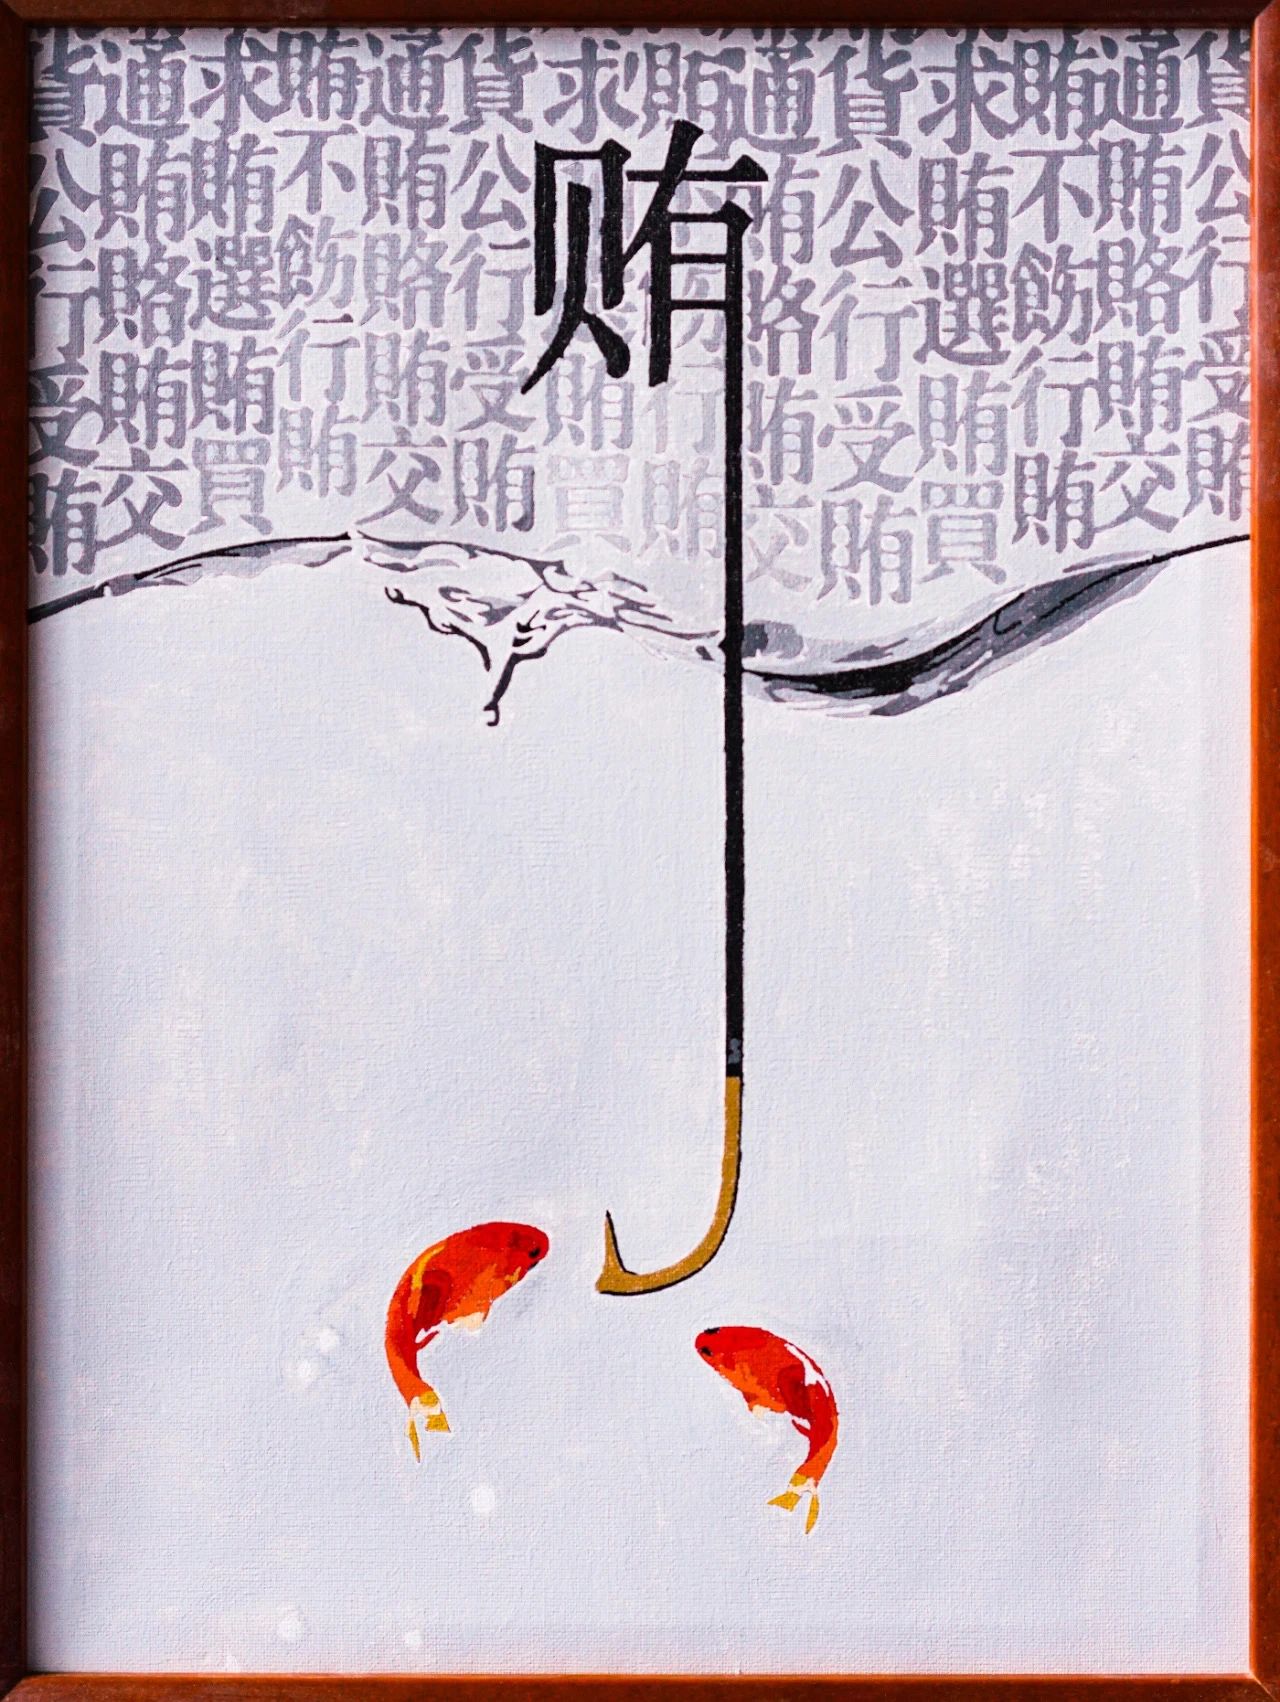 贿
貨公行受賄
通賄賂賄交
賄不飭行賄
求賄選賄買
貨公行受賄
通賄賂賄交
賄行賄
求賄買
貨公行受賄
通賄賂賄交
賄不飭行賄
求賄選賄買
通賄賂賄交
貨公行受賄